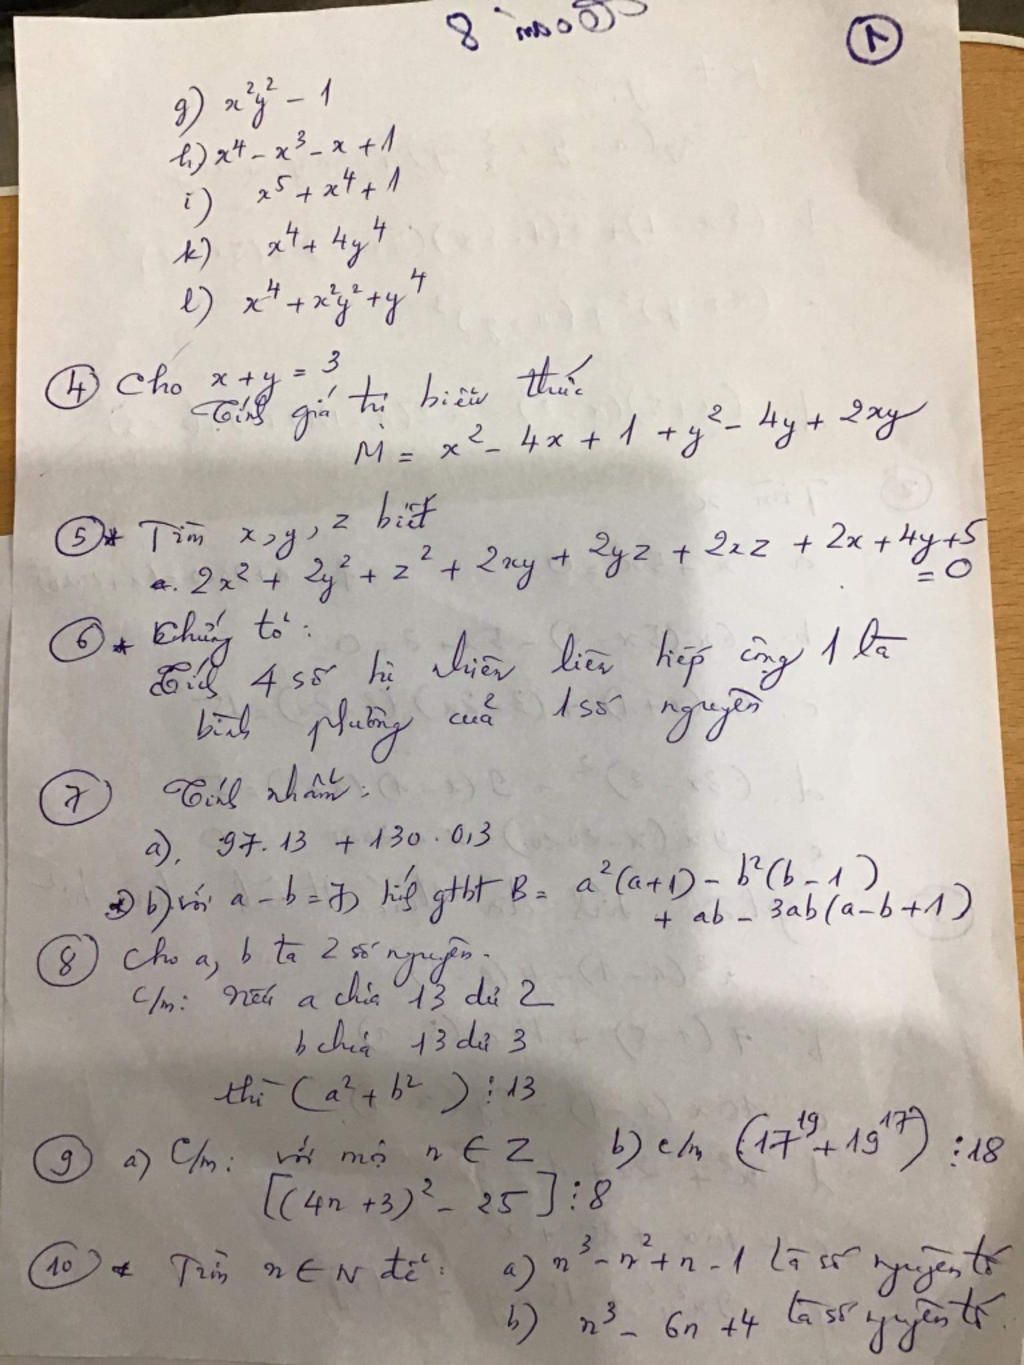 Toán 8
①
g) x²y² - 1
h) x⁴ - x³ - x + 1
i) x⁵ + x⁴ + 1
k) x⁴ + 4y⁴
l) x⁴ + x²y² + y⁴
④ Cho x + y = 3
Tính giá trị biểu thức
M = x² - 4x + 1 + y² - 4y + 2xy
⑤* Tìm x, y, z biết
a. 2x² + 2y² + z² + 2xy + 2yz + 2xz + 2x + 4y + 5
= 0
⑥* Chứng tỏ:
Tích 4 số tự nhiên liên tiếp cộng 1 là
bình phương của 1 số nguyên
⑦ Tính nhẩm:
a). 97.13 + 130.0,3
b) với a - b = 7, tính gtbt B = a²(a+1) - b²(b-1)
+ ab - 3ab(a-b+1)
⑧ Cho a, b là 2 số nguyên.
C/m: nếu a chia 13 dư 2
b chia 13 dư 3
thì (a² + b²) ⋮ 13
⑨ a) C/m: với mọi n ∈ Z b) c/m (17¹⁹ + 19¹⁷) ⋮ 18
[(4n + 3)² - 25] ⋮ 8
⑩* Tìm n ∈ N để: a) n³ - n² + n - 1 là số nguyên tố
b) n³ - 6n + 4 là số nguyên tố.